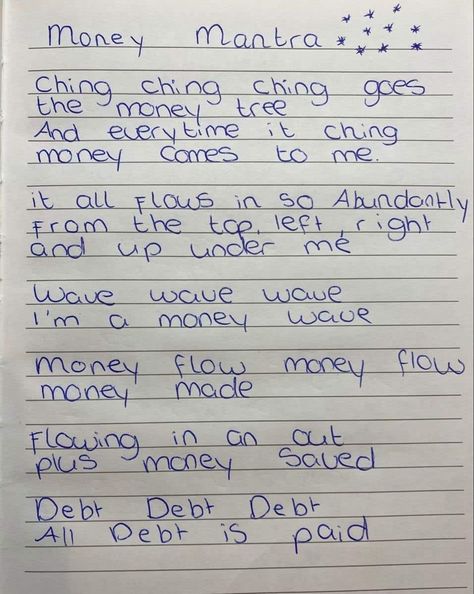 Money Mantra
Ching ching ching goes
the money tree
And everytime it ching
money comes to me.
it all flows in so Abundantly
From the top, left, right
and up under me
Wave wave wave
I'm a money wave
Money flow money flow
money made
Flowing in an out
plus money saved
Debt Debt Debt
All Debt is paid